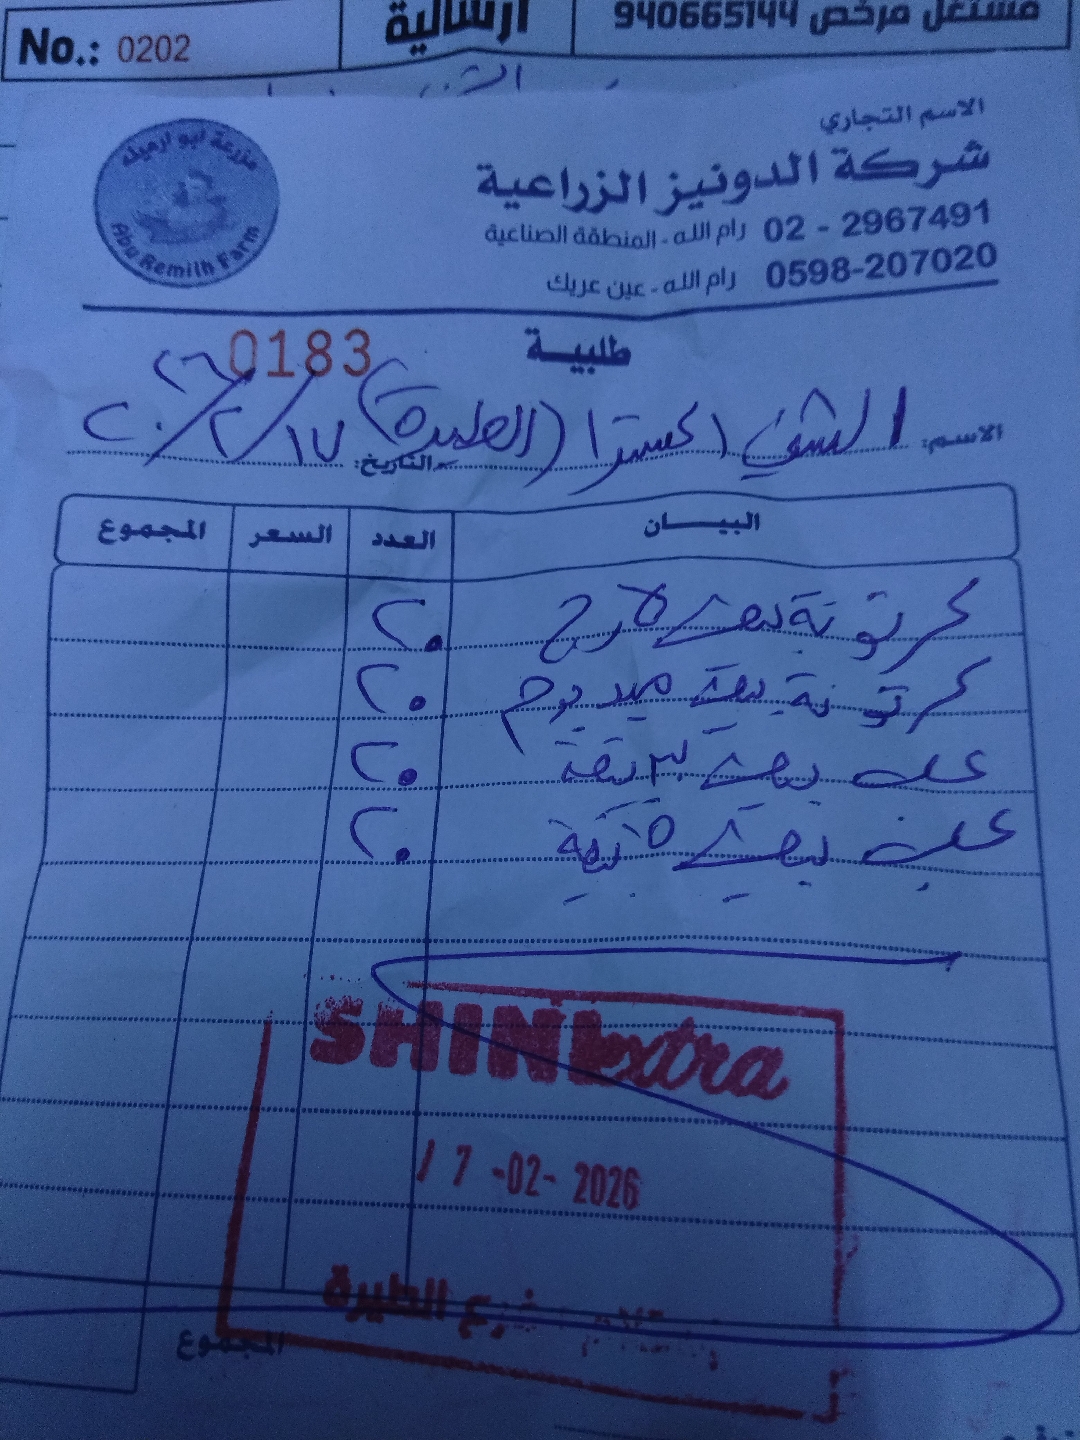 No.: 0202
ارسالية
مشتغل مرخص 940665144
الاسم التجاري
شركة الدونيز الزراعية
02 - 2967491 رام الله - المنطقة الصناعية
0598-207020 رام الله - عين عريك
مزرعة ابو ارميله
Abu Remilh Farm
0183
طلبية
الاسم: الشني اكسترا (الطيرة) التاريخ: ١٧/٢/٢٠٢٦
البيــــان العدد السعر المجموع
كرتونة بيض لارج ٢٠
كرتونة بيض ميديوم ٢٠
علب بيض ٣٠ بيضة ٢٠
علب بيض ١٥ بيضة ٢٠
SHINI extra
17 -02- 2026
فرع الطيرة
المجموع